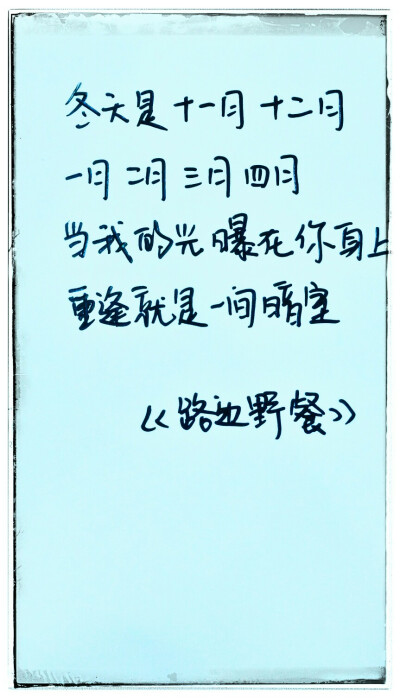 冬天是十一月 十二月
一月 二月 三月 四月
当我的光曝在你身上
重逢就是一间暗室
《路边野餐》